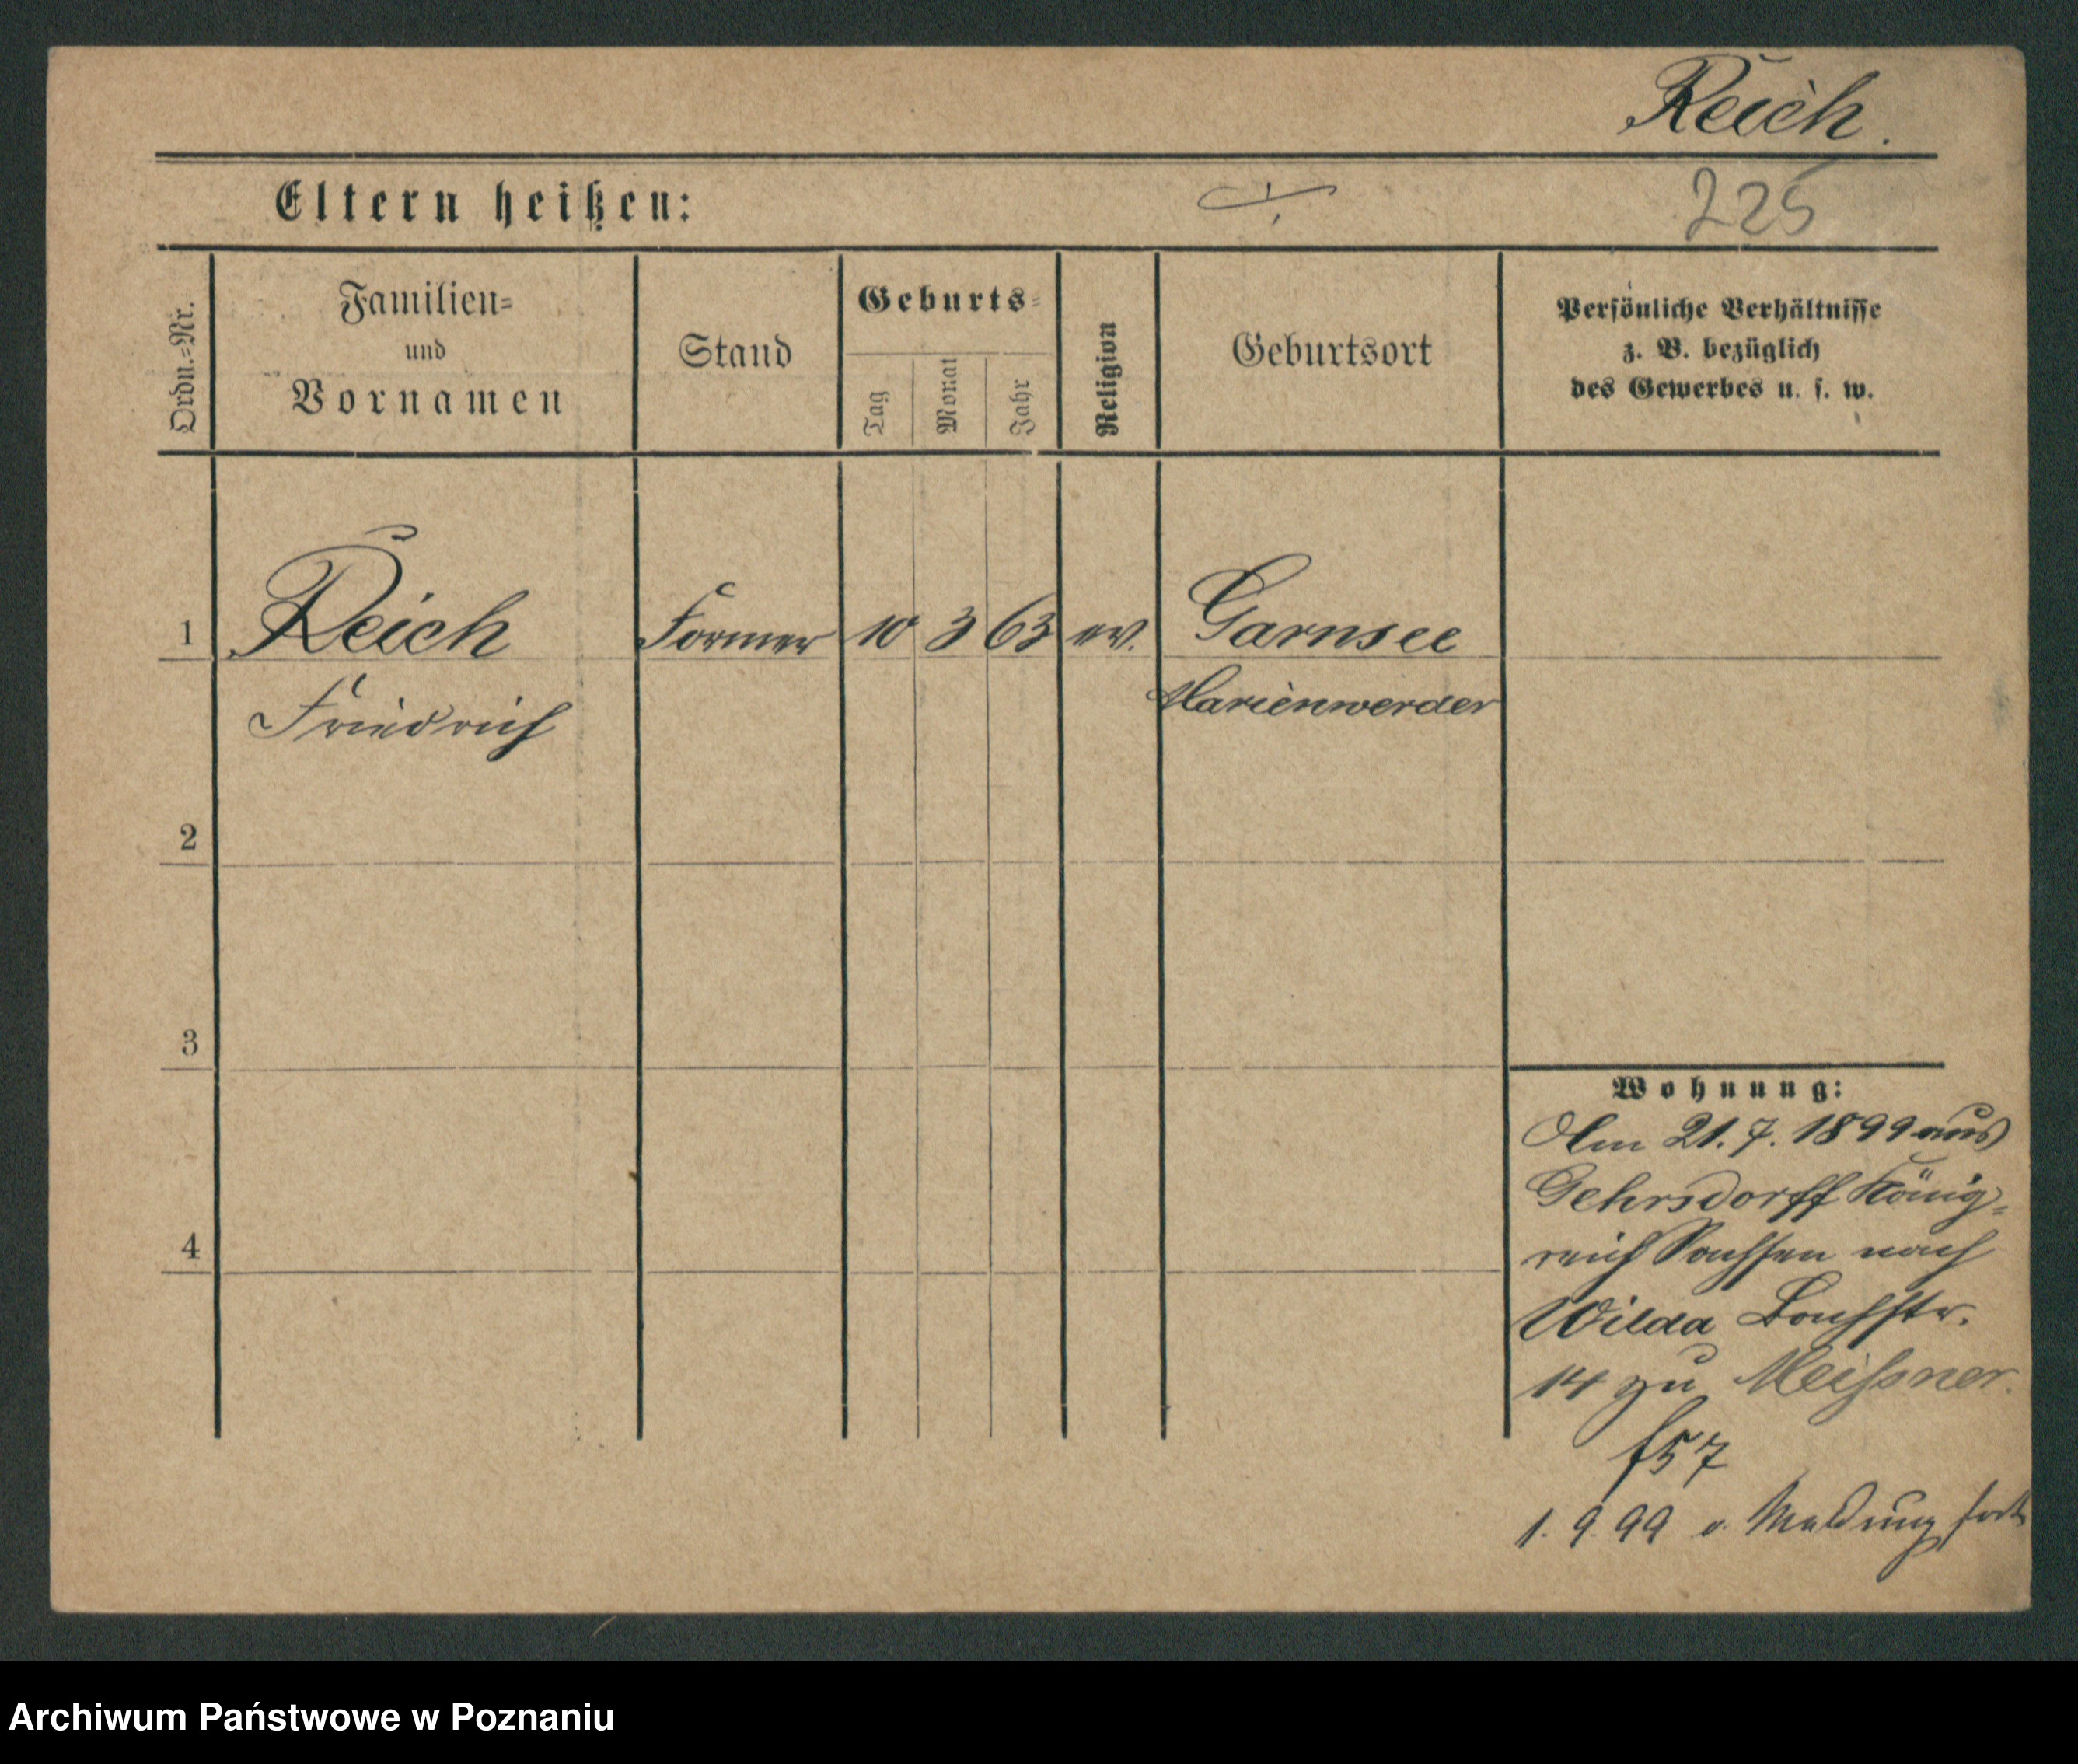 Reich.
Eltern heißen:
225
Ordn.=Nr.
Familien=
und
Vornamen
Stand
Geburts=
Tag
Monat
Jahr
Religion
Geburtsort
Persönliche Verhältnisse
z. B. bezüglich
des Gewerbes u. s. w.
1 Reich Former 10 3 63 ev. Garnsee
Friedrich Marienwerder
2
3
4
Wohnung:
Am 21. 7. 1899 aus
Gehrsdorff König=
reich Sachsen nach
Wilda Bachstr.
14 zu Meißner.
f57
1. 9. 99 o. Meldung fort
Archiwum Państwowe w Poznaniu